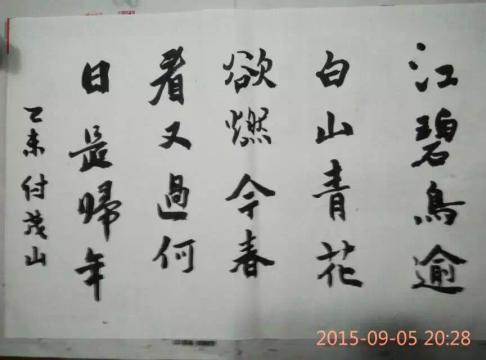 江碧鳥逾
白山青花
欲燃今春
看又過何
日是歸年
乙未付茂山
2015-09-05 20:28